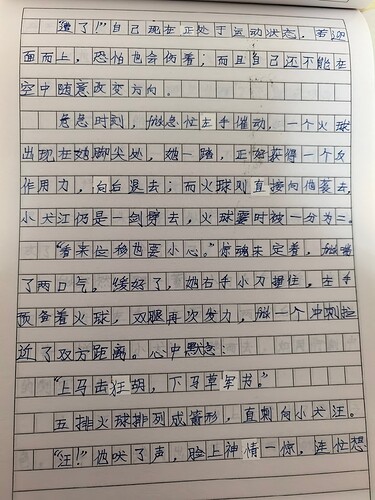 “遭了！”自己现在正处于运动状态，若迎
面而上，恐怕也会伤着；而且自己还不能在
空中随意改变方向。
危急时刻，她急忙左手催动，一个火球
出现在她脚尖处，她一踏，正好获得一个反
作用力，向后退去；而火球则直接向他袭去，
小犬汪仍是一剑劈去，火球霎时被一分为二。
“看来位移也要小心。”惊魂未定着，她喘
了两口气，缓好了，她右手小刀握住，左手
预备着火球，双腿再次发力，做一个冲刺拉
近了双方距离。心中默念：
“上马击狂胡，下马草军书。”
五排火球排列成箭形，直刺向小犬汪。
“汪！”他吠了声，脸上神情一惊，连忙想